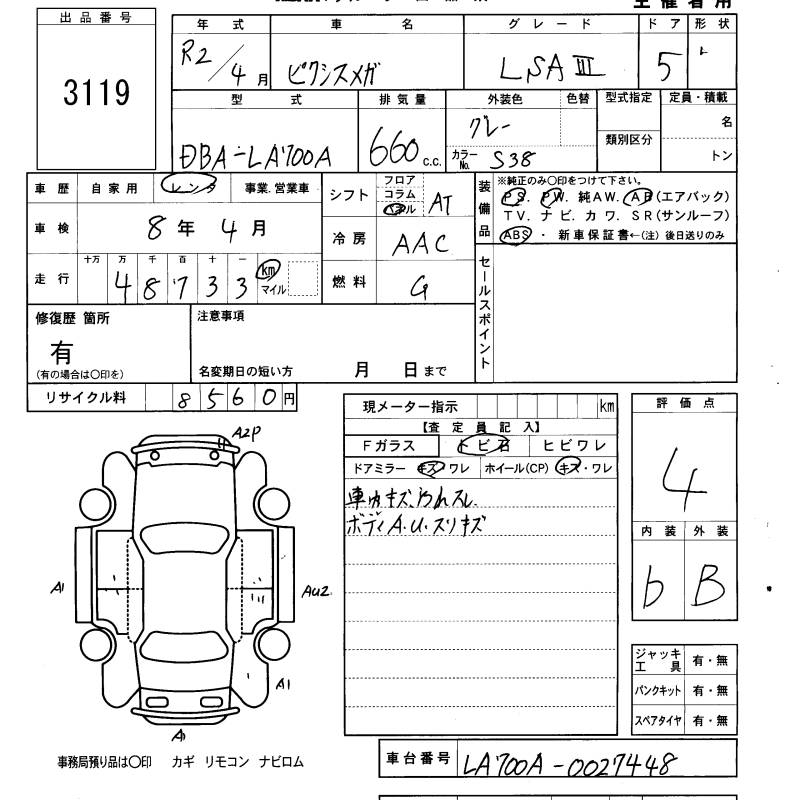 主催者用
出品番号
3119
年式 車名 グレード ドア 形状
R2/4月 ピクシスメガ LSAⅢ 5
型式 排気量 外装色 色替 型式指定 定員・積載
DBA-LA700A 660 c.c. グレー 名
カラーNo. S38 類別区分 トン
車歴 自家用 レンタ 事業.営業車
シフト フロア コラム パネル AT
装備品 ※純正のみ〇印をつけて下さい。
PS. PW. 純AW. AB(エアバック)
TV. ナビ. カワ. SR(サンルーフ)
ABS ・ 新車保証書←(注) 後日送りのみ
車検 8年 4月
冷房 AAC
走行 十万 万 千 百 十 一
48733 km マイル
燃料 G
セールスポイント
修復歴 箇所
有
(有の場合は〇印を)
注意事項
名変期日の短い方 月 日まで
リサイクル料 8560円
現メーター指示 km
【査定員記入】
Fガラス トビ石 ヒビワレ
ドアミラー キズ・ワレ ホイール(CP) キズ・ワレ
車内キズ.
ボディA.U.スリキズ
評価点
4
内装 外装
b B
A2P
A1
AU2
A1
A1
ジャッキ工具 有・無
パンクキット 有・無
スペアタイヤ 有・無
事務局預り品は〇印 カギ リモコン ナビロム
車台番号 LA700A-0027448